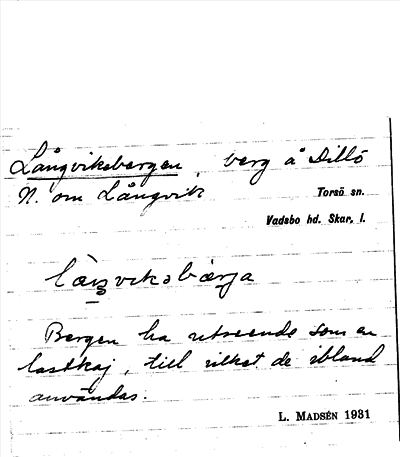 Långviksbergen, berg å Dillö
N. om Långvik
Torsö sn.
Vadsbo hd. Skar. l.
Bergen ha utseende som en
lastkaj, till vilket de ibland
användas.
L. MADSÉN 1931